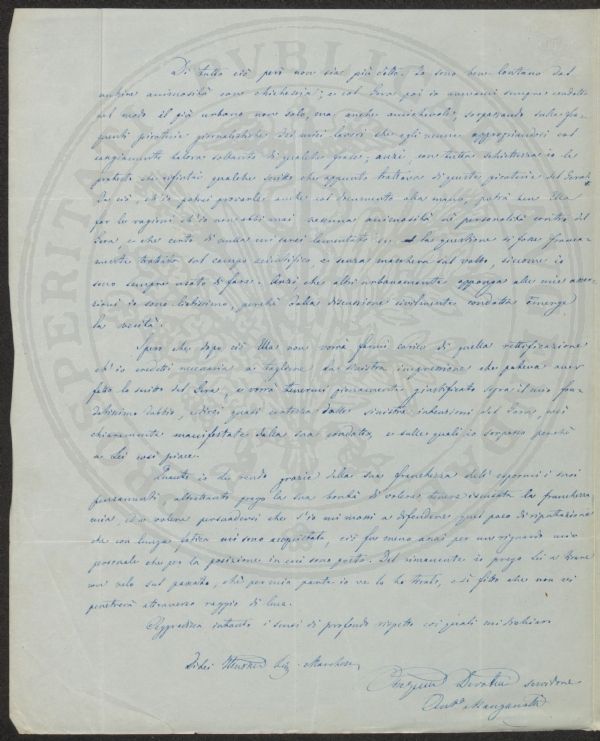 Di tutto ciò però non sia più detto. Io sono ben lontano dal
nutrire animosità con chichessia; e col Gera poi io
nel modo il più urbano non solo, ma anche amichevole, sorpassando sulle
piraterie giornalistiche dei miei lavori che egli appropriandosi col
cangiamento talora soltanto di qualche frase; anzi, con tutta schiettezza io le
protesto che qualche scritto che appunto trattava di queste piraterie del Gera.
Da ciò, ch'io potrei provarle anche col documento alla mano, potrà ben Ella
le ragioni ch'io non ebbi mai nessuna animosità di personalità contro del
Gera, e che certo di nulla mi sarei lamentato se la questione si fosse franca-
mente trattata sul campo scientifico, e senza maschera sul volto, siccome io
sono sempre usato di fare. Anzi che altri urbanamente opponga alle mie asser-
zioni io sono lietissimo, perchè dalla discussione civilmente condotta emerge
la verità.
Spero che dopo ciò Ella non vorrà farmi carico di quella rettificazione
ch'io credetti necessaria a togliere la sinistra impressione che poteva aver
fatto lo scritto del Gera, e vorrà tenermi pienamente giustificato sopra il mio fon-
datissimo dubbio, e direi quasi certezza delle sinistre intenzioni del Gera, così
chiaramente manifestate dalla sua condotta, e sulle quali io sorpasso perchè
a Lei così piace.
Quanto io Le rendo grazie della sua franchezza dell'espormi i suoi
pensamenti altrettanto prego la sua bontà di volere tenere iscusata la franchezza
mia, ed a volere persuadersi che s'io mi mossi a difendere quel poco di riputazione
che con lunga fatica mi sono acquistata, ciò fu meno anzi per un riguardo mio
personale che per la posizione in cui sono posto. Del rimanente io prego Lei a tirare
un velo sul passato, chè per mia parte io ve lo ho tirato, e sì fitto che non vi
penetrerà attraverso raggio di luce.
Aggradisca intanto i sensi di profondo rispetto coi quali mi dichiaro
Di Lei Illustre Sig. Marchese
Devotis servidore
Ant.o Manganotti